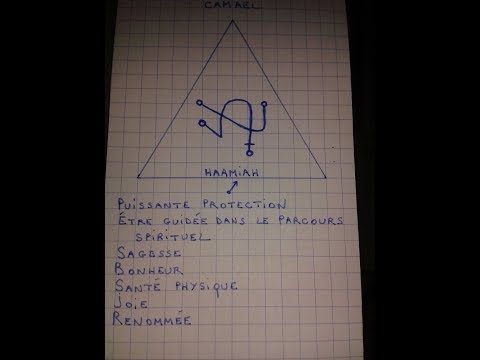 CAMAEL
HAAMIAH
PUISSANTE PROTECTION
ÊTRE GUIDÉE DANS LE PARCOURS
SPIRITUEL
SAGESSE
BONHEUR
SANTÉ PHYSIQUE
JOIE
RENOMMÉE